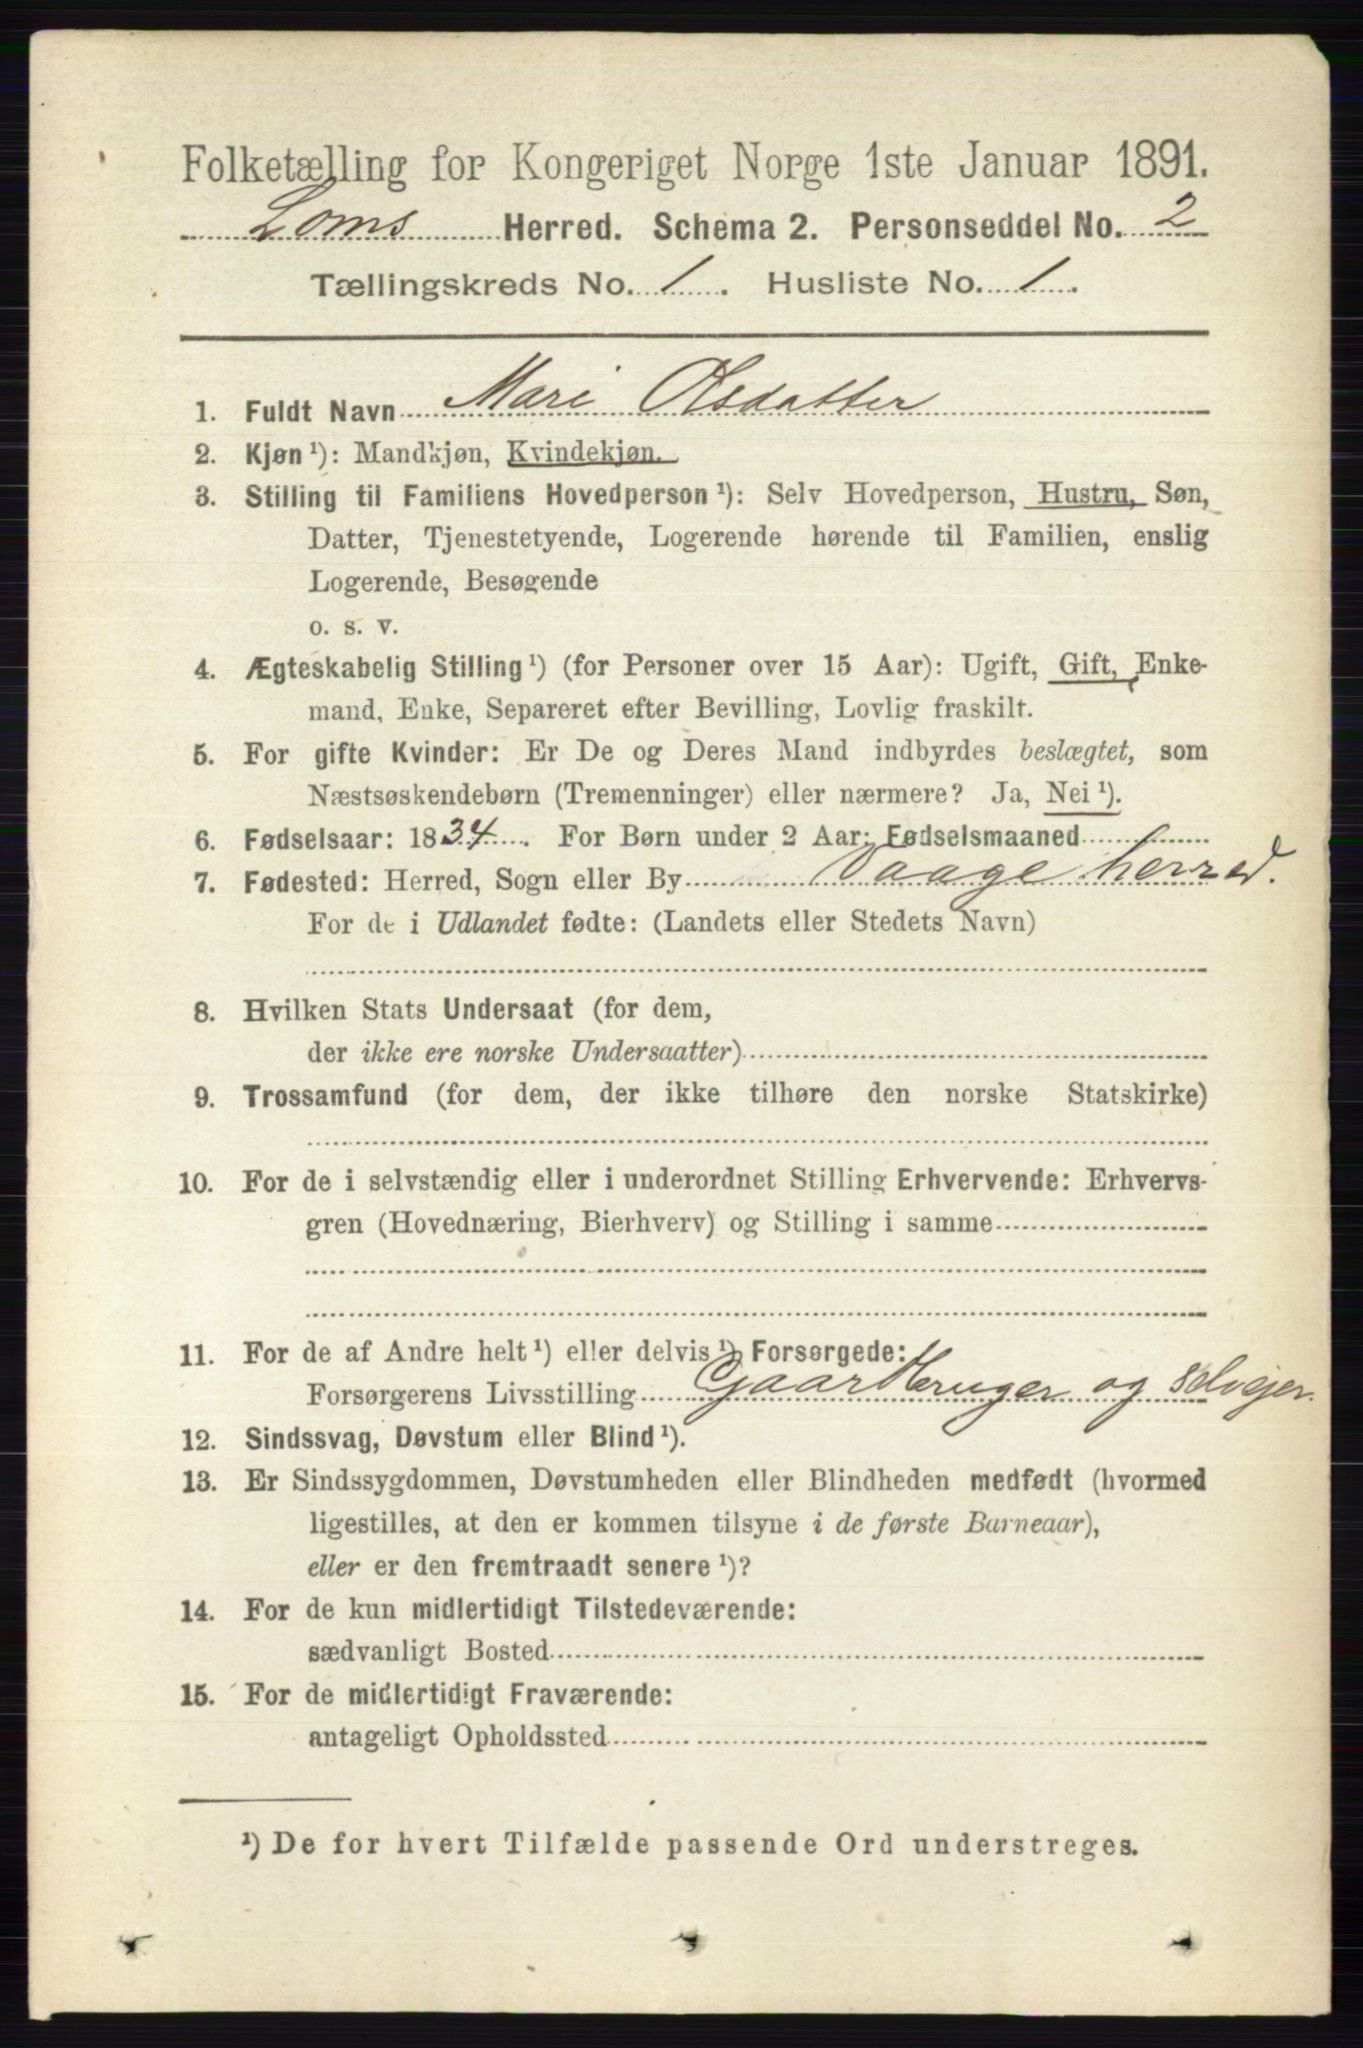 Folketælling for Kongeriget Norge 1ste Januar 1891.
Loms Herred. Schema 2. Personseddel No. 2
Tællingskreds No. 1. Husliste No. 1.
1. Fuldt Navn Mari Olsdatter
2. Kjøn¹): Mandkjøn, Kvindekjøn.
3. Stilling til Familiens Hovedperson¹): Selv Hovedperson, Hustru, Søn,
Datter, Tjenestetyende, Logerende hørende til Familien, enslig
Logerende, Besøgende
o. s. v.
4. Ægteskabelig Stilling¹) (for Personer over 15 Aar): Ugift, Gift, Enke-
mand, Enke, Separeret efter Bevilling, Lovlig fraskilt.
5. For gifte Kvinder: Er De og Deres Mand indbyrdes beslægtet, som
Næstsøskendebørn (Tremenninger) eller nærmere? Ja, Nei¹).
6. Fødselsaar: 1834. For Børn under 2 Aar: Fødselsmaaned
7. Fødested: Herred, Sogn eller By Vaage herred.
For de i Udlandet fødte: (Landets eller Stedets Navn)
8. Hvilken Stats Undersaat (for dem,
der ikke ere norske Undersaatter)
9. Trossamfund (for dem, der ikke tilhøre den norske Statskirke)
10. For de i selvstændig eller i underordnet Stilling Erhvervende: Erhvervs-
gren (Hovednæring, Bierhverv) og Stilling i samme
11. For de af Andre helt¹) eller delvis¹) Forsørgede:
Forsørgerens Livsstilling Gaardbruger og Selvejer.
12. Sindssvag, Døvstum eller Blind¹).
13. Er Sindssygdommen, Døvstumheden eller Blindheden medfødt (hvormed
ligestilles, at den er kommen tilsyne i de første Barneaar),
eller er den fremtraadt senere¹)?
14. For de kun midlertidigt Tilstedeværende:
sædvanligt Bosted
15. For de midlertidigt Fraværende:
antageligt Opholdssted
¹) De for hvert Tilfælde passende Ord understreges.